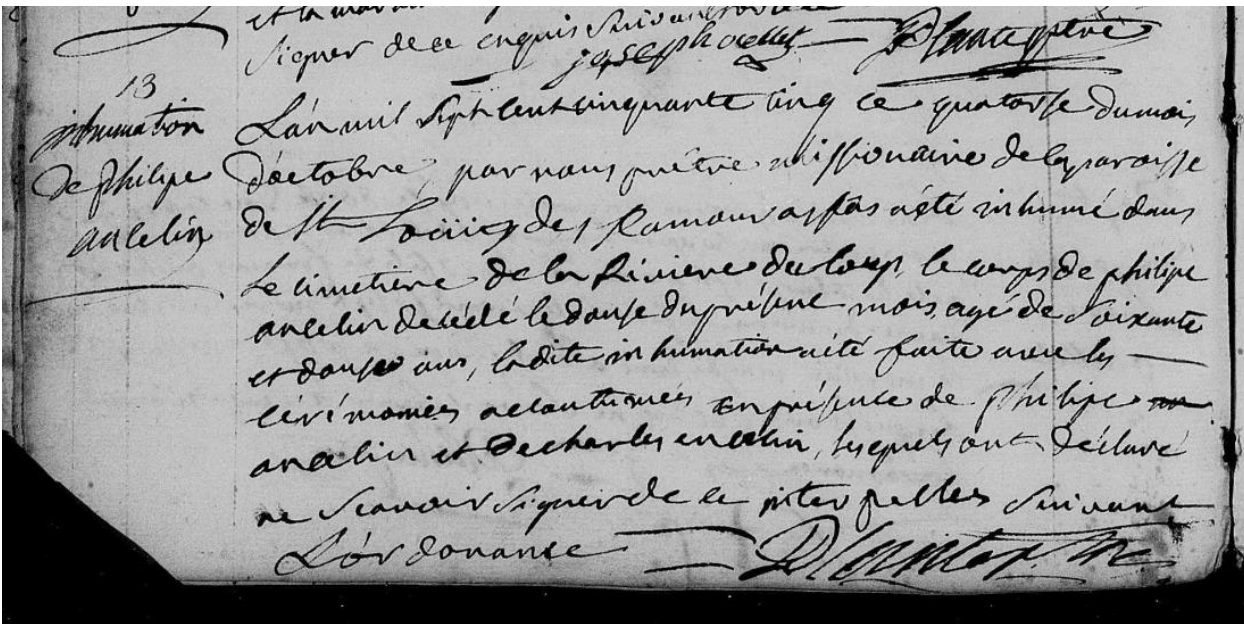 et la
signer de ce enquis suivant
joseph
13
inhumation
de philipe
ancelin
L'an mil sept cent cinquante cinq ce quatorse du mois
d'octobre, par nous prêtre missionaire de la paroisse
de St Loüis des Kamourasfas a été in humé dans
le cimetiere de la Riviere du loup, le corps de philipe
ancelin decédé le douse du présent mois, agé de Soixante
et douse ans, la dite in humation a été faite avec les
cérémonies acoutumées en présence de Philipe
ancelin et de charles encelin, lesquels ont déclaré
ne scavoir signer de ce interpelles suivant
L'ordonanse